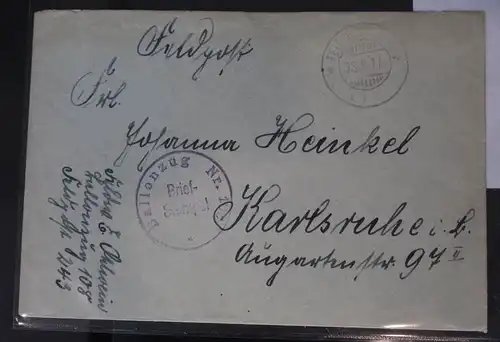 Feldpost
Frl.
Johanna Heinkel
Karlsruhe i. B.
Augartenstr. 97 II
Ballonzug Nr.
Brief-
Stempel
Ballonzug 108
1243